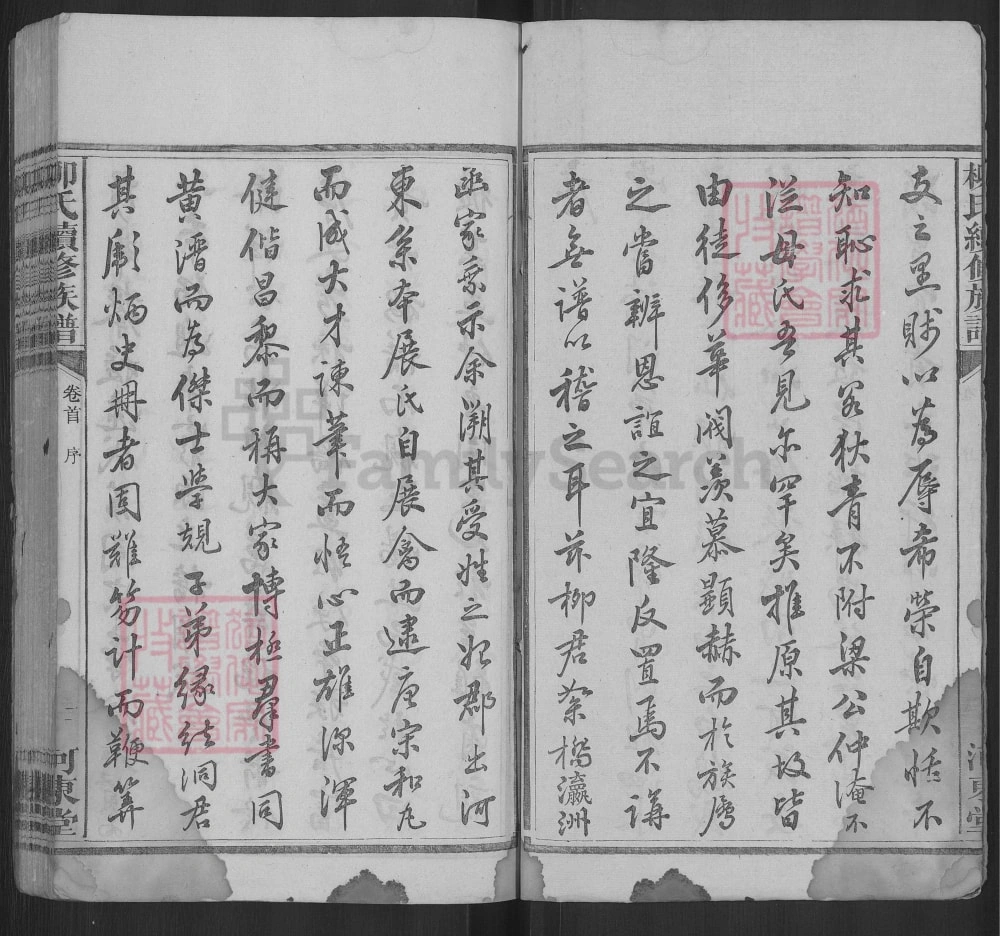 柳氏續修族譜
河東堂
支之里賤以為辱希榮自欺恬不
知恥求其若狄青不附梁公仲淹不
從母氏吾見亦罕矣推原其故皆
由徒侈華閥羨慕顯赫而於族屬
之當辦恩誼之宜隆反置焉不講
者無譜以稽之耳茲柳君 橋瀛洲
家乘示余溯其受姓之始郡出河
東系本展氏自展禽而逮唐宗和凡
而成大才諫筆而悟心正雄深渾
健偕昌黎而稱大家博極羣書同
黃潛而為傑士學規子弟緣結洞君
其彪炳史冊者固難笏計而鞭筭
柳氏續修族譜
卷首 序
河東堂
FamilySearch